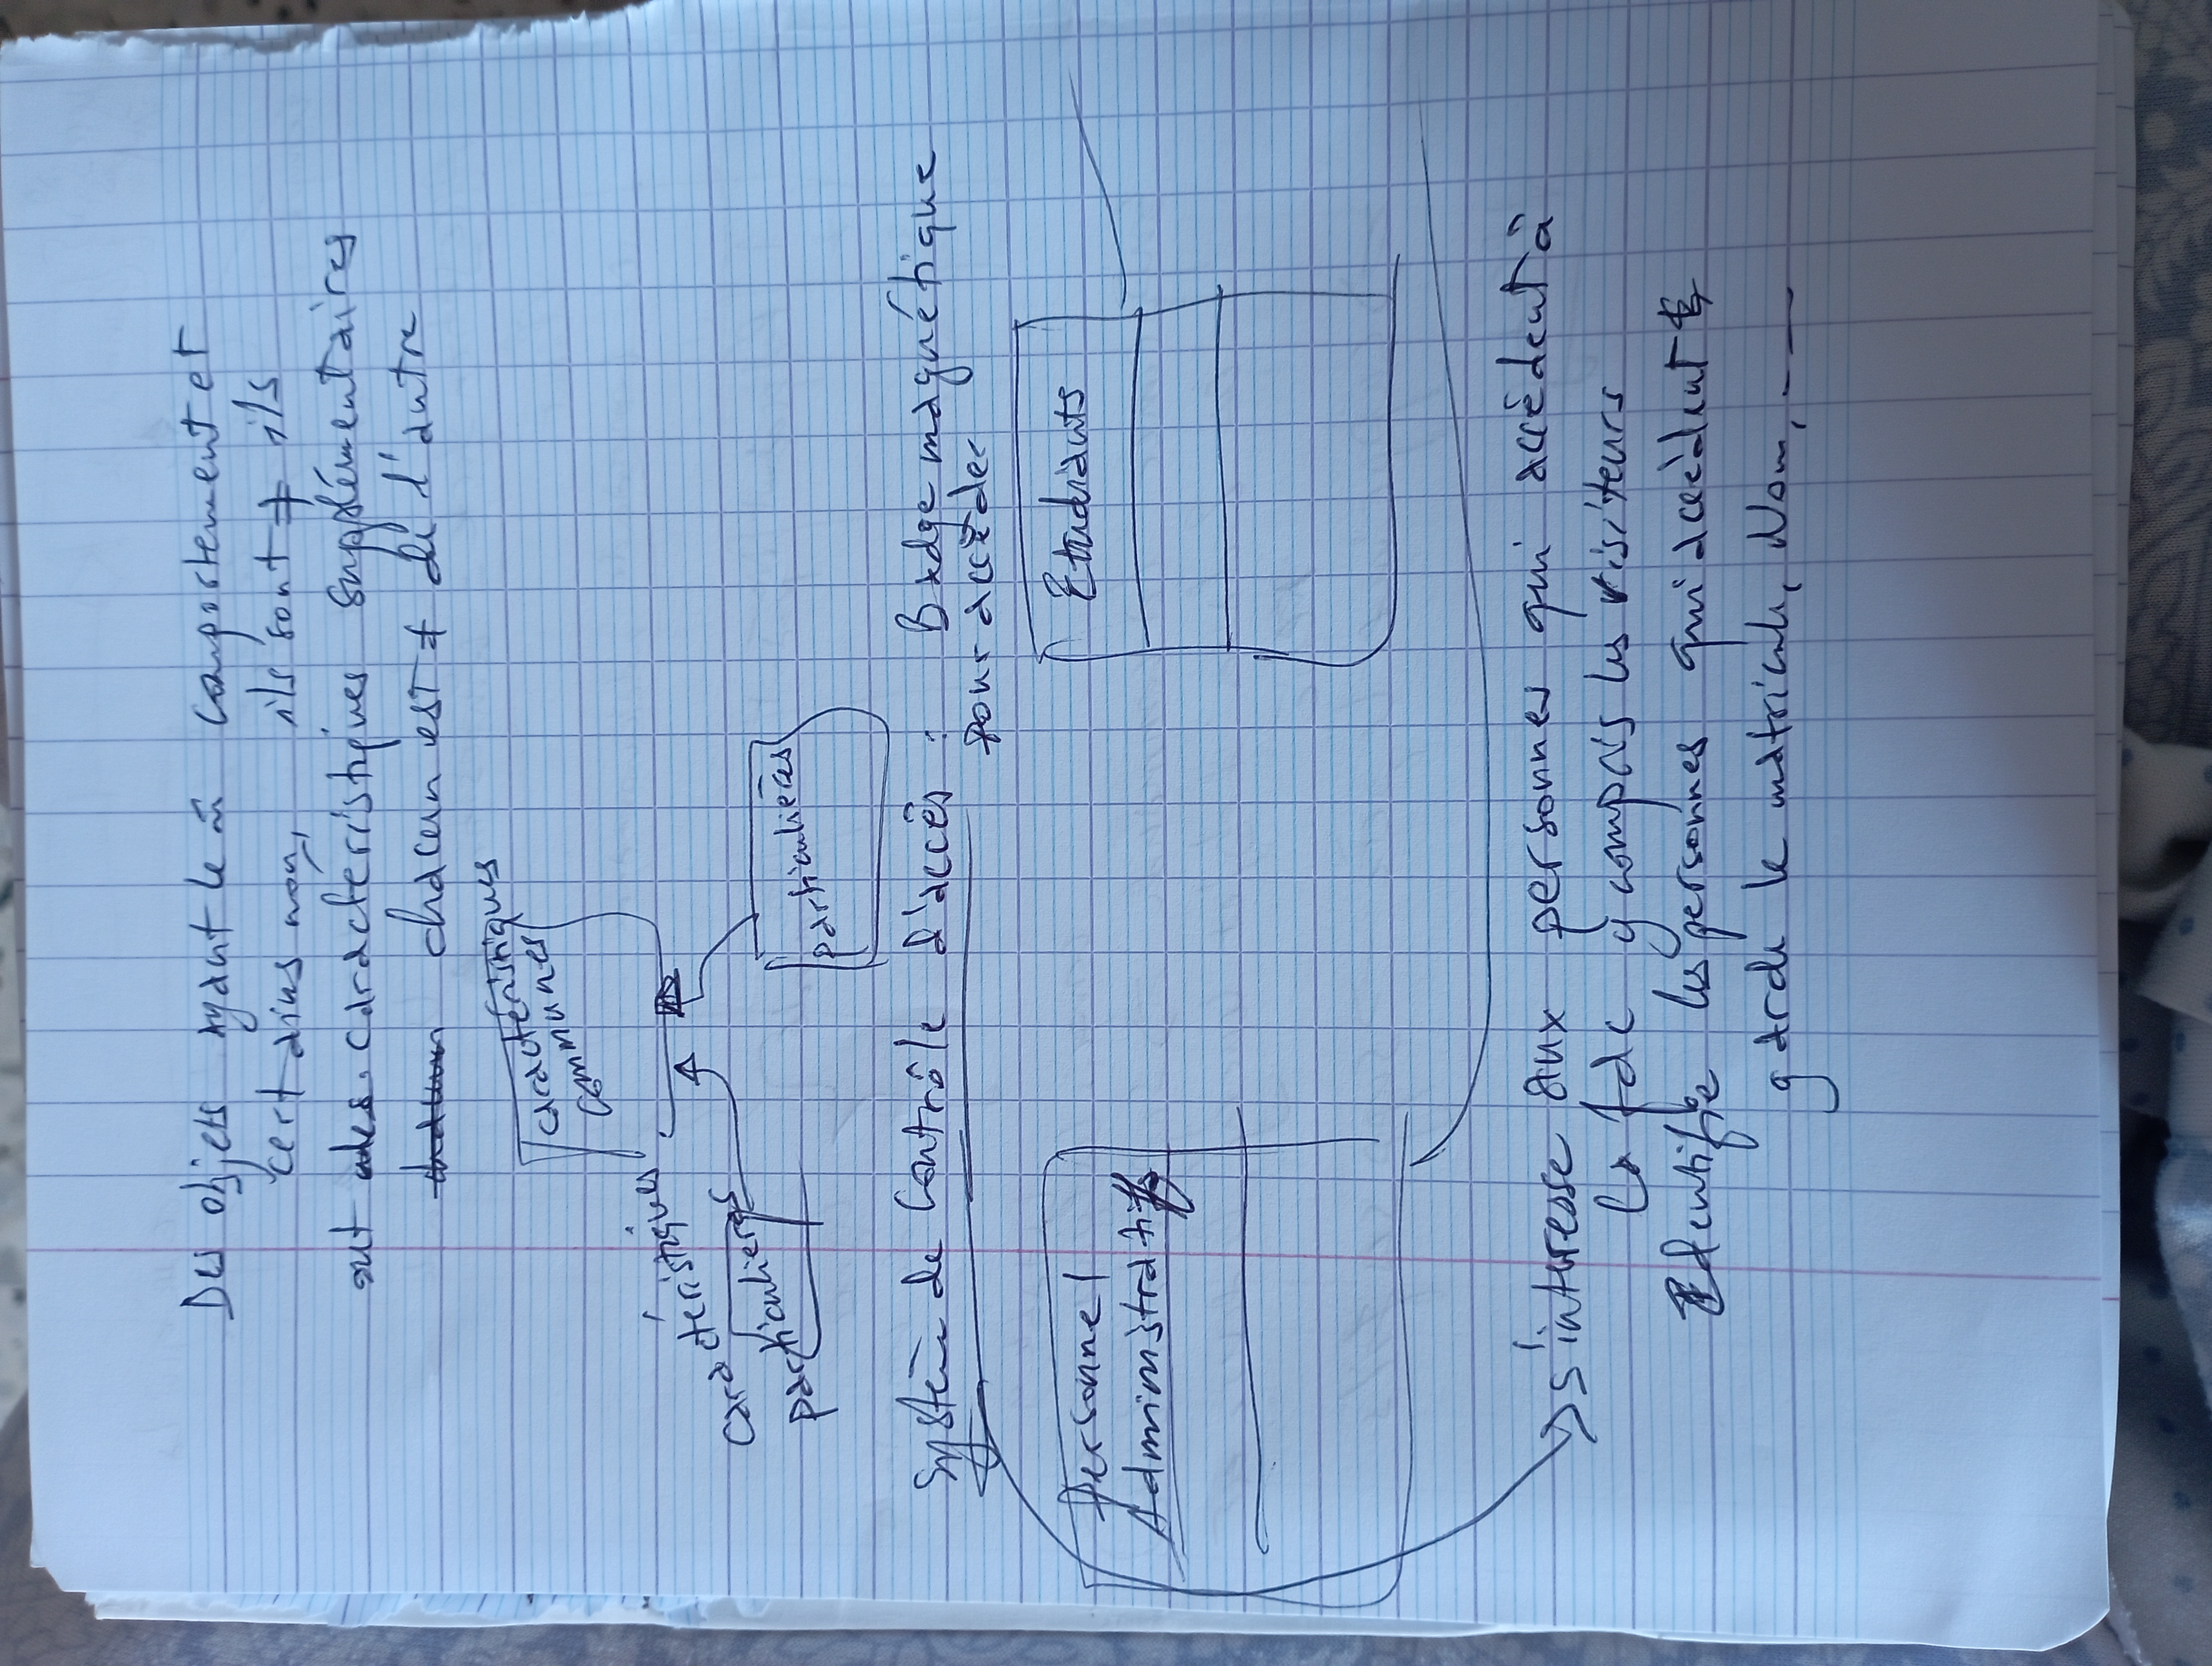 Des objets ayant le m̂ Comportement et
certains non, ils sont ≠ ils
ont des caractéristiques supplémentaires
chacun est ≠ de l'autre
caractéristiques
communes
caractéristiques
particulières
particulières
Systèm de Contrôle d'accès : Badge magnétique
pour accéder
Personnel
Administratif
Etudiants
s'intéresse aux personnes qui accèdent à
la fac y compris les visiteurs
Identifie les personnes qui accèdent
garde le matricule, Nom, - —